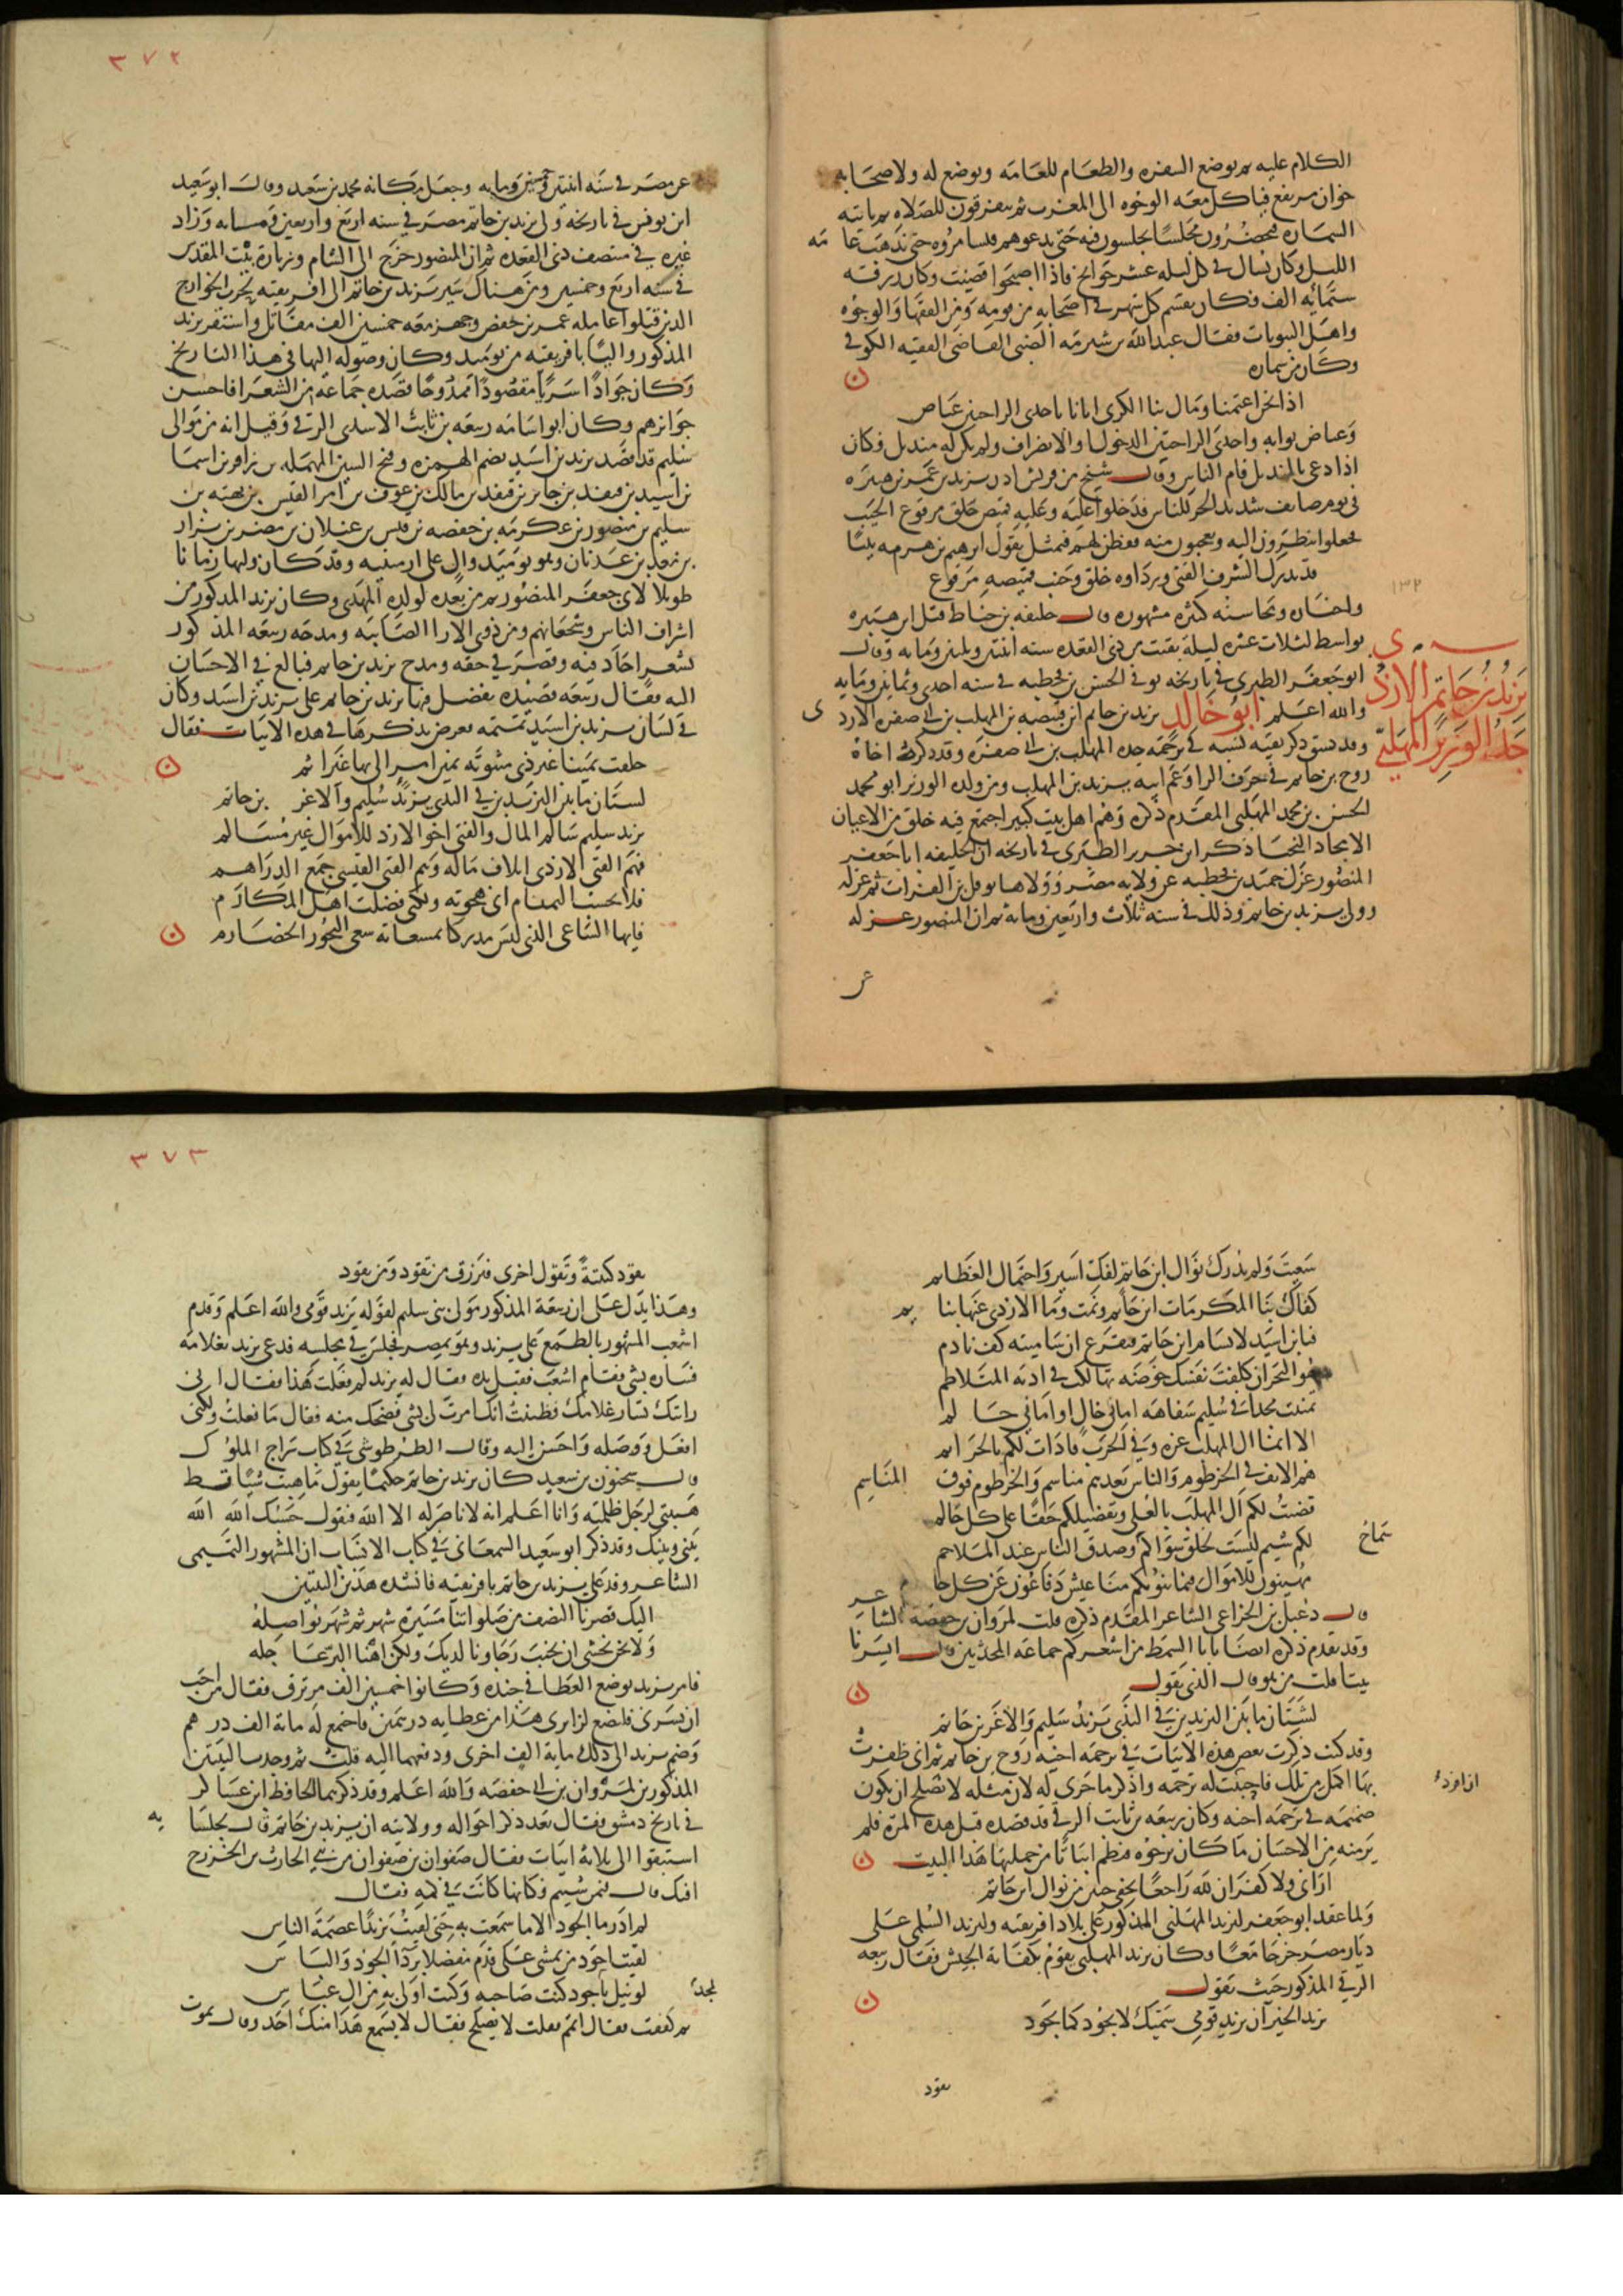 الكلام عليه ثم يوضع السفره والطعام للعامه ويوضع له ولاصحابه
خوان مرتفع فياكل معه الوجوه الى المغرب ثم يتفرقون للصلاه ثم ياتيه
السماره فيحضرون مجلسا يجلسون فيه حتى يدعوهم فيسامروه حتى تذهب عامه
الليل وكان يسال في كل ليله عشر حوايج فاذا اصبحوا قضيت وكان رزقه
ستمائه الف فكان يقسم كل شهر في اصحابه من قومه ومن الفقها والوجوه
واهل البيوتات فقال عبدالله بن شبرمه الضبي القاضي الفقيه الكوفي
وكان من سماره
اذا نحن اعتمنا ومال بنا الكرى اتانا باحدى الراحتين عياض
وعياض بوابه واحدى الراحتين الدخول او الانصراف ولم يكن له منديل فكان
اذا دعى بالمنديل قام الناس وقال شيخ من قريش اذن يزيد بن عمر بن هبيره
في يوم صايف شديد الحر للناس فدخلوا عليه وعليه قميص خلق مرقوع الجيب
فجعلوا ينظرون اليه ويعجبون منه ففطن لهم فتمثل بقول ابرهيم بن هرمه بيتا
قد يدرك الشرف الفتى ورداوه خلق وجيب قميصه مرقوع
واخباره ومحاسنه كثيره مشهوره قال خليفه بن خياط قتل ابن هبيره
بواسط لثلاث عشره ليلة بقيت من ذي القعده سنه اثنتين وثلثين ومايه وقال
ابو جعفر الطبري في تاريخه توفي الحسن بن قحطبه في سنه احدى وثمانين ومايه
يزيد بن حاتم الازدي
جد الوزير المهلبي
والله اعلم ابو خالد يزيد بن حاتم ابن قبيصه بن المهلب بن ابي صفره الازدي
وقد سبق ذكر بقيه نسبه في ترجمه جده المهلب بن ابي صفره وقد ذكرت اخاه
روح بن حاتم في حرف الرا وعم ابيه يزيد بن المهلب ومن ولده الوزير ابو محمد
الحسن بن محمد المهلبي المقدم ذكره وهم اهل بيت كبير اجتمع فيه خلق من الاعيان
الامجاد النجبا ذكر ابن جرير الطبري في تاريخه ان الخليفه ابا جعفر
المنصور عزل حميد بن قحطبه عن ولايه مصر وولاها نوفل بن الفرات ثم عزله
وولى يزيد بن حاتم وذلك في سنه ثلاث واربعين ومائة ثم ان المنصور عزله
عن
٣٧٢
عن مصر في سنه اثنتين وخمسين ومايه وجعل مكانه محمد بن سعيد وقال ابو سعيد
ابن يونس في تاريخه ولى يزيد بن حاتم مصر في سنه اربع واربعين ومايه وزاد
غيره في منتصف ذى القعده ثم ان المنصور خرج الى الشام وزيارة بيت المقدس
في سنه اربع وخمسين ومن هناك سير يزيد بن حاتم الى افريقيه لحرب الخوارج
الذين قتلوا عامله عمر بن حفص وجهز معه خمسين الف مقاتل واستقر يزيد
المذكور واليا بافريقيه من يوميد وكان وصوله اليها في هذا التاريخ
وكان جوادا سريا مقصودا ممدوحا قصده جماعه من الشعرا فاحسن
جوايزهم وكان ابو اسامه ربيعه بن ثابت الاسدي الرقي وقيل انه من موالي
سليم قد قصد يزيد بن اسيد بضم الهمزه وفتح السين المهمله بن زافر بن اسما
بن اسيد بن قنفد بن جابر بن قنفد بن مالك بن عوف بن امر القيس بن بهثه بن
سليم بن منصور بن عكرمه بن حفصه بن قيس بن عيلان بن مضر بن نزار
بن معد بن عدنان وهو يوميد وال على ارمينيه وقد كان وليها زمانا
طويلا لابي جعفر المنصور ثم من بعده لولده المهدى وكان يزيد المذكور من
اشراف الناس وشجعانهم ومن ذوي الارا الصايبه ومدحه ربيعه المذكور
بشعر اجاد فيه وقصر في حقه ومدح يزيد بن حاتم فبالغ في الاحسان
اليه فقال ربيعه قصيده يفضل فيها يزيد بن حاتم على يزيد بن اسيد وكان
في لسان يزيد بن اسيد تمتمه فعرض بذكرها في هذه الابيات فقال
حلفت يمينا غير ذى مثنوية يمين امر الى بها غير اثم
لشتان ما بين اليزيدين في الندى يزيد سليم والاغر بن حاتم
يزيد سليم سالم المال والفتى اخو الازد للاموال غير مسالم
فهم الفتى الازدى اتلاف ماله وهم الفتى القيسي جمع الدراهم
فلا يحسب التمتام اني هجوته ولكنني فضلت اهل المكارم
فيايها الساعى الذى ليس مدركا بمسعاته سعى البحور الخضارم
سعيت ولم تدرك نوال ابن حاتم لفك اسير واحتمال العظايم
كفاك بنا المكرمات ابن حاتم ونمت وما الازدى عنها بنايم
فيا بن اسيد لا تسام ابن حاتم فتقرع ان ساميته كف نادم
هو البحر ان كلفت نفسك خوضه تهالكت في اذيه المتلاطم
تمنيت مجدا في سليم سفاهه اماني خال او اماني حالم
الا انما ال المهلب غره وفي الحرب قادات لكم بالخزايم
هم الانف في الخرطوم والناس بعدهم مناسم والخرطوم فوق المناسم
قضيت لكم ال المهلب بالعلى وتفضيلكم حقا على كل حاكم
لكم شيم ليست لخلق سواكم وصدق الناس عند الملاحم
سماح
مهينون للاموال فيما ينوبكم مناعيش دفاعون عن كل جارم
قال دعبل بن الخزاعى الشاعر المقدم ذكره قلت لمروان بن حفصه الشاعر
وقد تقدم ذكره ايضا يابا السمط من اشعركم جماعه المحدثين قال ايسرنا
بيتا قلت من هو قال الذى يقول
لشتان ما بين اليزيدين في الندى يزيد سليم والاغر بن حاتم
وقد كنت ذكرت بعض هذه الابيات في ترجمه اخيه روح بن حاتم ثم اني ظفرت
بها اكمل من تلك فاحببت له ترجمه واذكر ما جرى له لان مثله لا يصلح ان يكون
ان افرد
ضميمه في ترجمه اخيه وكان ربيعه بن ثابت الرقي قد قصده قبل هذه المره فلم
ير منه من الاحسان ما كان يرجوه فنظم ابياتا من جملتها هذا البيت
اراني ولا كفران لله راجعا بخفي حنين من نوال ابن حاتم
ولما عقد ابو جعفر ليزيد المهلبي المذكور على بلاد افريقيه وليزيد السلمي على
ديار مصر خرجا معا وكان يزيد المهلبي يقوم بكفاية الجيش فقال ربيعه
الرقي المذكور حيث يقول
يزيد الخير ان يزيد قومي سميك لا يجود كما تجود
تقود
٣٧٣
تقود كتيبة ويقود اخرى فترزق من تقود ومن يقود
وهذا يدل على ان ربيعة المذكور مولى بنى سليم لقوله يزيد قومي والله اعلم وقدم
اشعب المشهور بالطمع على يزيد وهو بمصر فجلس في مجلسه فدعى يزيد بغلامه
فساره بشى فقام اشعب فقبل يده فقال له يزيد لم فعلت هذا فقال اني
رايتك تسار غلامك فظننت انك امرت لي بشى فضحك منه فقال ما فعلت ولكني
افعل ووصله واحسن اليه وقال الطرطوشي في كتاب سراج الملوك
قال سحنون بن سعيد كان يزيد بن حاتم حكيما يقول ما هبت شيا قط
هيبتي لرجل ظلمته وانا اعلم انه لا ناصر له الا الله فيقول حسبك الله الله
بيني وبينك وقد ذكر ابو سعيد السمعاني في كتاب الانساب ان المشهور التميمي
الشاعر وفد على يزيد بن حاتم بافريقيه فانشده هذين البيتين
اليك قصرنا النصف من صلواتنا مسيرة شهر ثم شهر نواصله
ولا نحن نخشى ان يخيب رجاونا لديك ولكن اهنا البر عاجله
فامر يزيد بوضع العطا في جنده وكانوا خمسين الف مرتزق فقال من احب
ان يسرنى فليضع لزايرى هذا من عطايه درهمين فاجتمع له مائة الف درهم
وضم يزيد الى ذلك ماية الف اخرى ودفعهما اليه قلت ثم وجدت البيتين
المذكورين لمروان بن ابي حفصه والله اعلم وقد ذكرهما الحافظ ابن عساكر
في تاريخ دمشق فقال بعد ذكر احواله وولايته ان يزيد بن حاتم قال لجلسايه
استبقوا الى ثلاثة ابيات فقال صفوان بن صفوان من بني الحارث بن الخزرج
افيك قال فيمن شيتم فكانها كانت في فمه فقال
لم ادر ما الجود الا ما سمعت به حتى لقيت يزيدا عصمة الناس
لقيت اجود من يمشى على قدم مفضلا برداء الجود والباس
لو نيل بالجود كنت صاحبه وكنت اولى به من ال عباس
مجد
ثم كففت فقال اتم فقلت لا يصلح فقال لا يسمع هذا منك احد وقال يموت